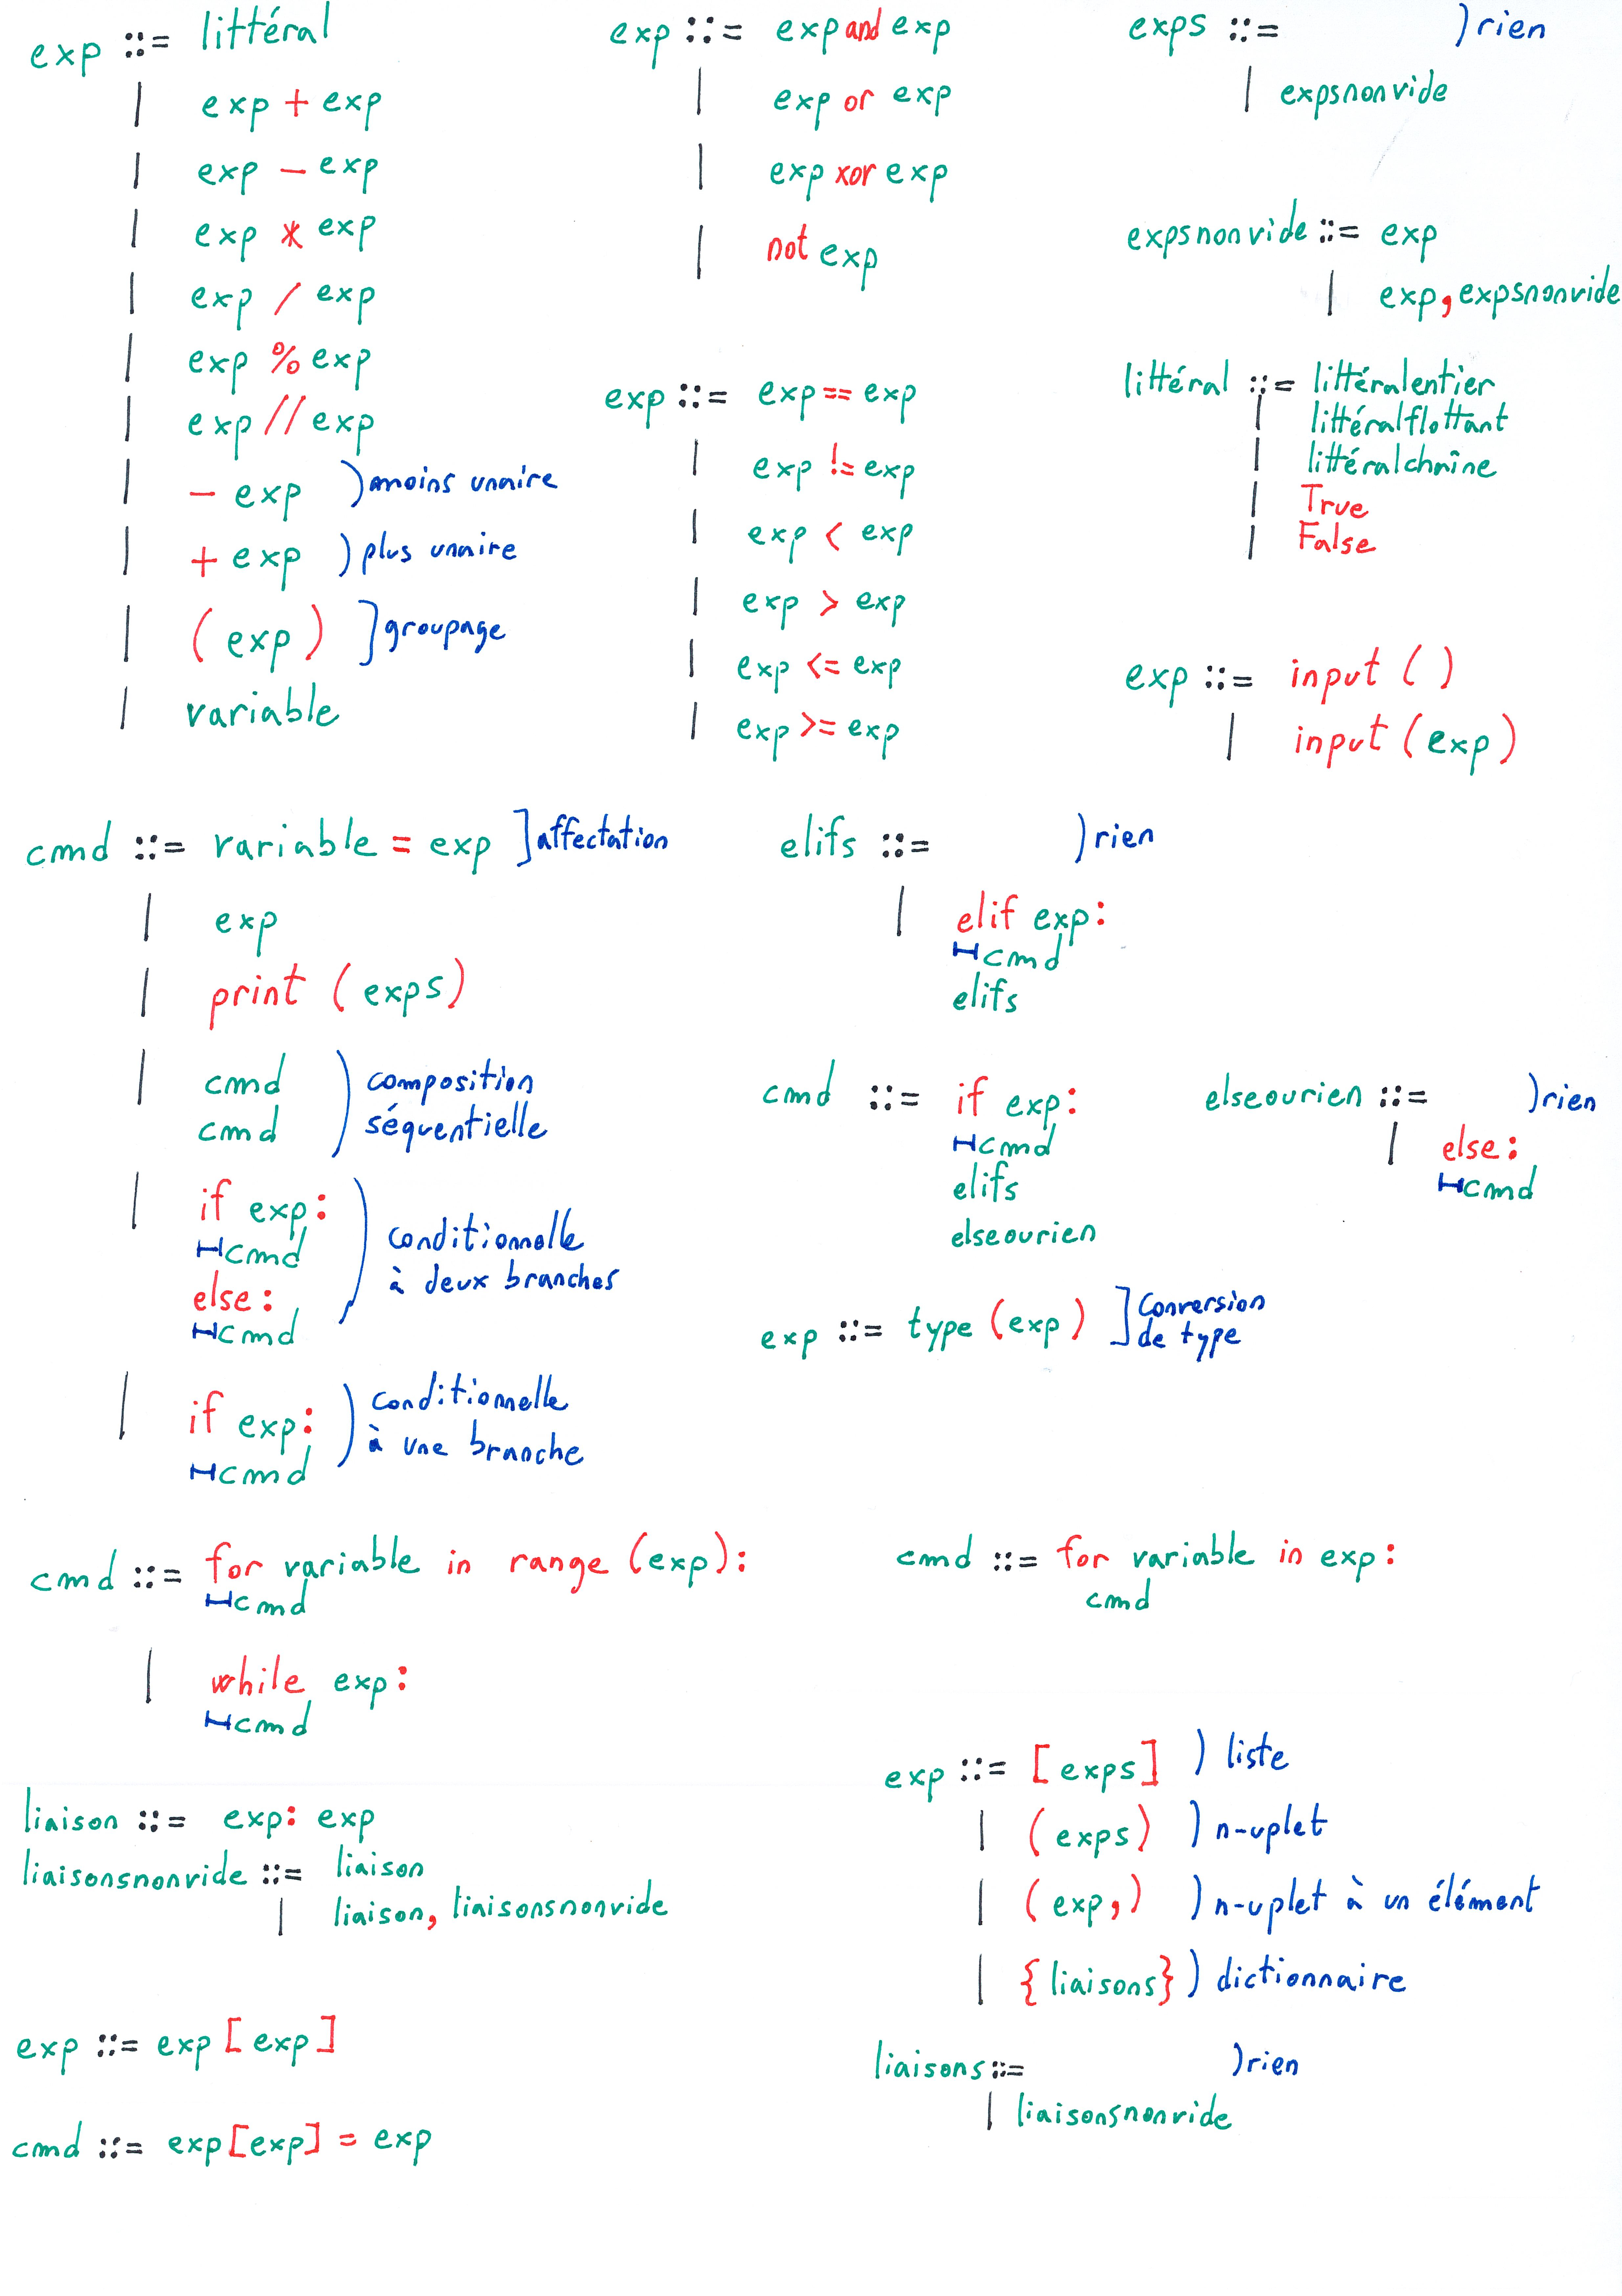 exp ::= littéral
| exp + exp
| exp - exp
| exp * exp
| exp / exp
| exp % exp
| exp // exp
| - exp )moins unaire
| + exp )plus unaire
| ( exp ) ]groupage
| variable
exp ::= exp and exp
| exp or exp
| exp xor exp
| not exp
exp ::= exp == exp
| exp != exp
| exp < exp
| exp > exp
| exp <= exp
| exp >= exp
exps ::= )rien
| expsnonvide
expsnonvide ::= exp
| exp, expsnonvide
littéral ::= littéralentier
| littéralflottant
| littéralchaîne
| True
| False
exp ::= input ( )
| input ( exp )
cmd ::= variable = exp ]affectation
| exp
| print ( exps )
| cmd ) composition
cmd séquentielle
| if exp:
cmd ) conditionnelle
else: à deux branches
cmd
| if exp: ) conditionnelle
cmd à une branche
elifs ::= )rien
| elif exp:
cmd
elifs
cmd ::= if exp:
cmd
elifs
elseourien
elseourien ::= )rien
| else:
cmd
exp ::= type (exp) ]Conversion
de type
cmd ::= for variable in range (exp):
cmd
| while exp:
cmd
cmd ::= for variable in exp:
cmd
liaison ::= exp: exp
liaisonsnonvide ::= liaison
| liaison, liaisonsnonvide
exp ::= exp [ exp ]
cmd ::= exp[exp] = exp
exp ::= [ exps ] ) liste
| ( exps ) ) n-uplet
| ( exp, ) ) n-uplet à un élément
| { liaisons } ) dictionnaire
liaisons ::= )rien
| liaisonsnonvide